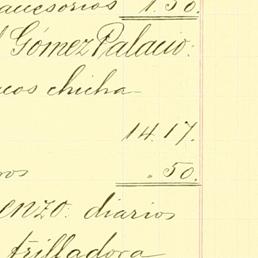 accesorios 1.50.
Gómez Palacio:
chicha-
14.17.
.50.
enzo. diarios
trilladora